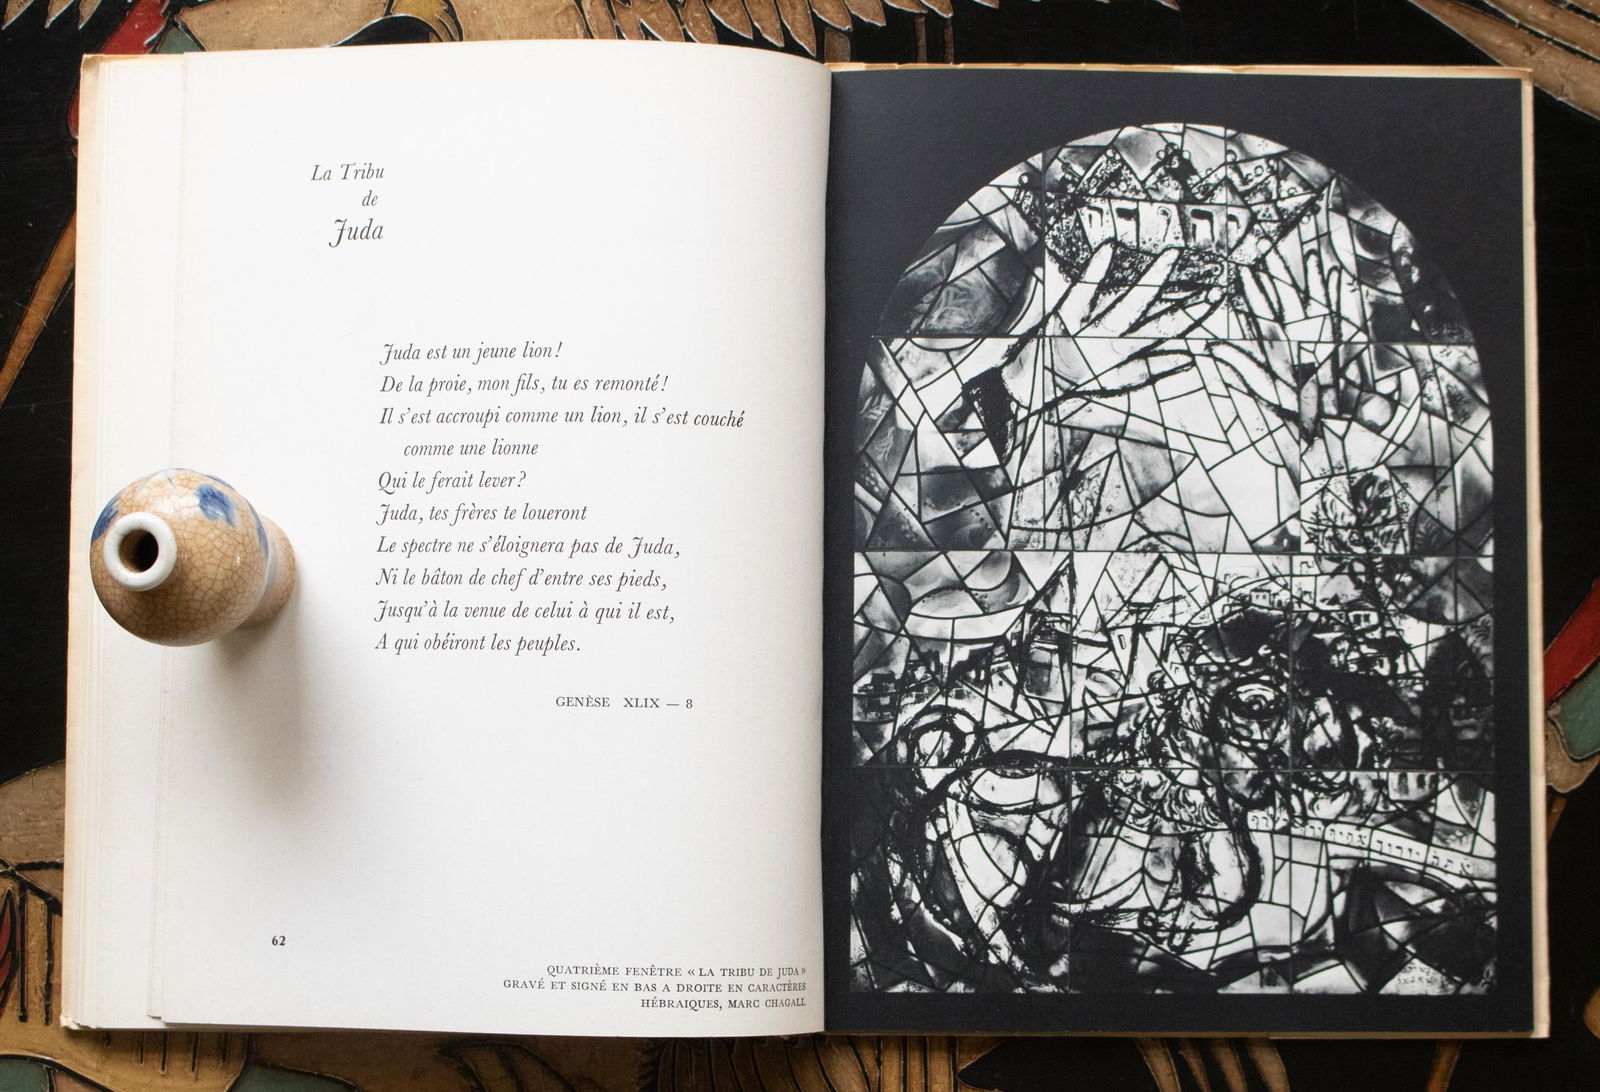 La Tribu
de
Juda
Juda est un jeune lion!
De la proie, mon fils, tu es remonté!
Il s'est accroupi comme un lion, il s'est couché
comme une lionne
Qui le ferait lever?
Juda, tes frères te loueront
Le spectre ne s'éloignera pas de Juda,
Ni le bâton de chef d'entre ses pieds,
Jusqu'à la venue de celui à qui il est,
A qui obéiront les peuples.
GENÈSE XLIX — 8
62
QUATRIÈME FENÊTRE « LA TRIBU DE JUDA »
GRAVÉ ET SIGNÉ EN BAS A DROITE EN CARACTÈRES
HÉBRAIQUES, MARC CHAGALL
יהודה